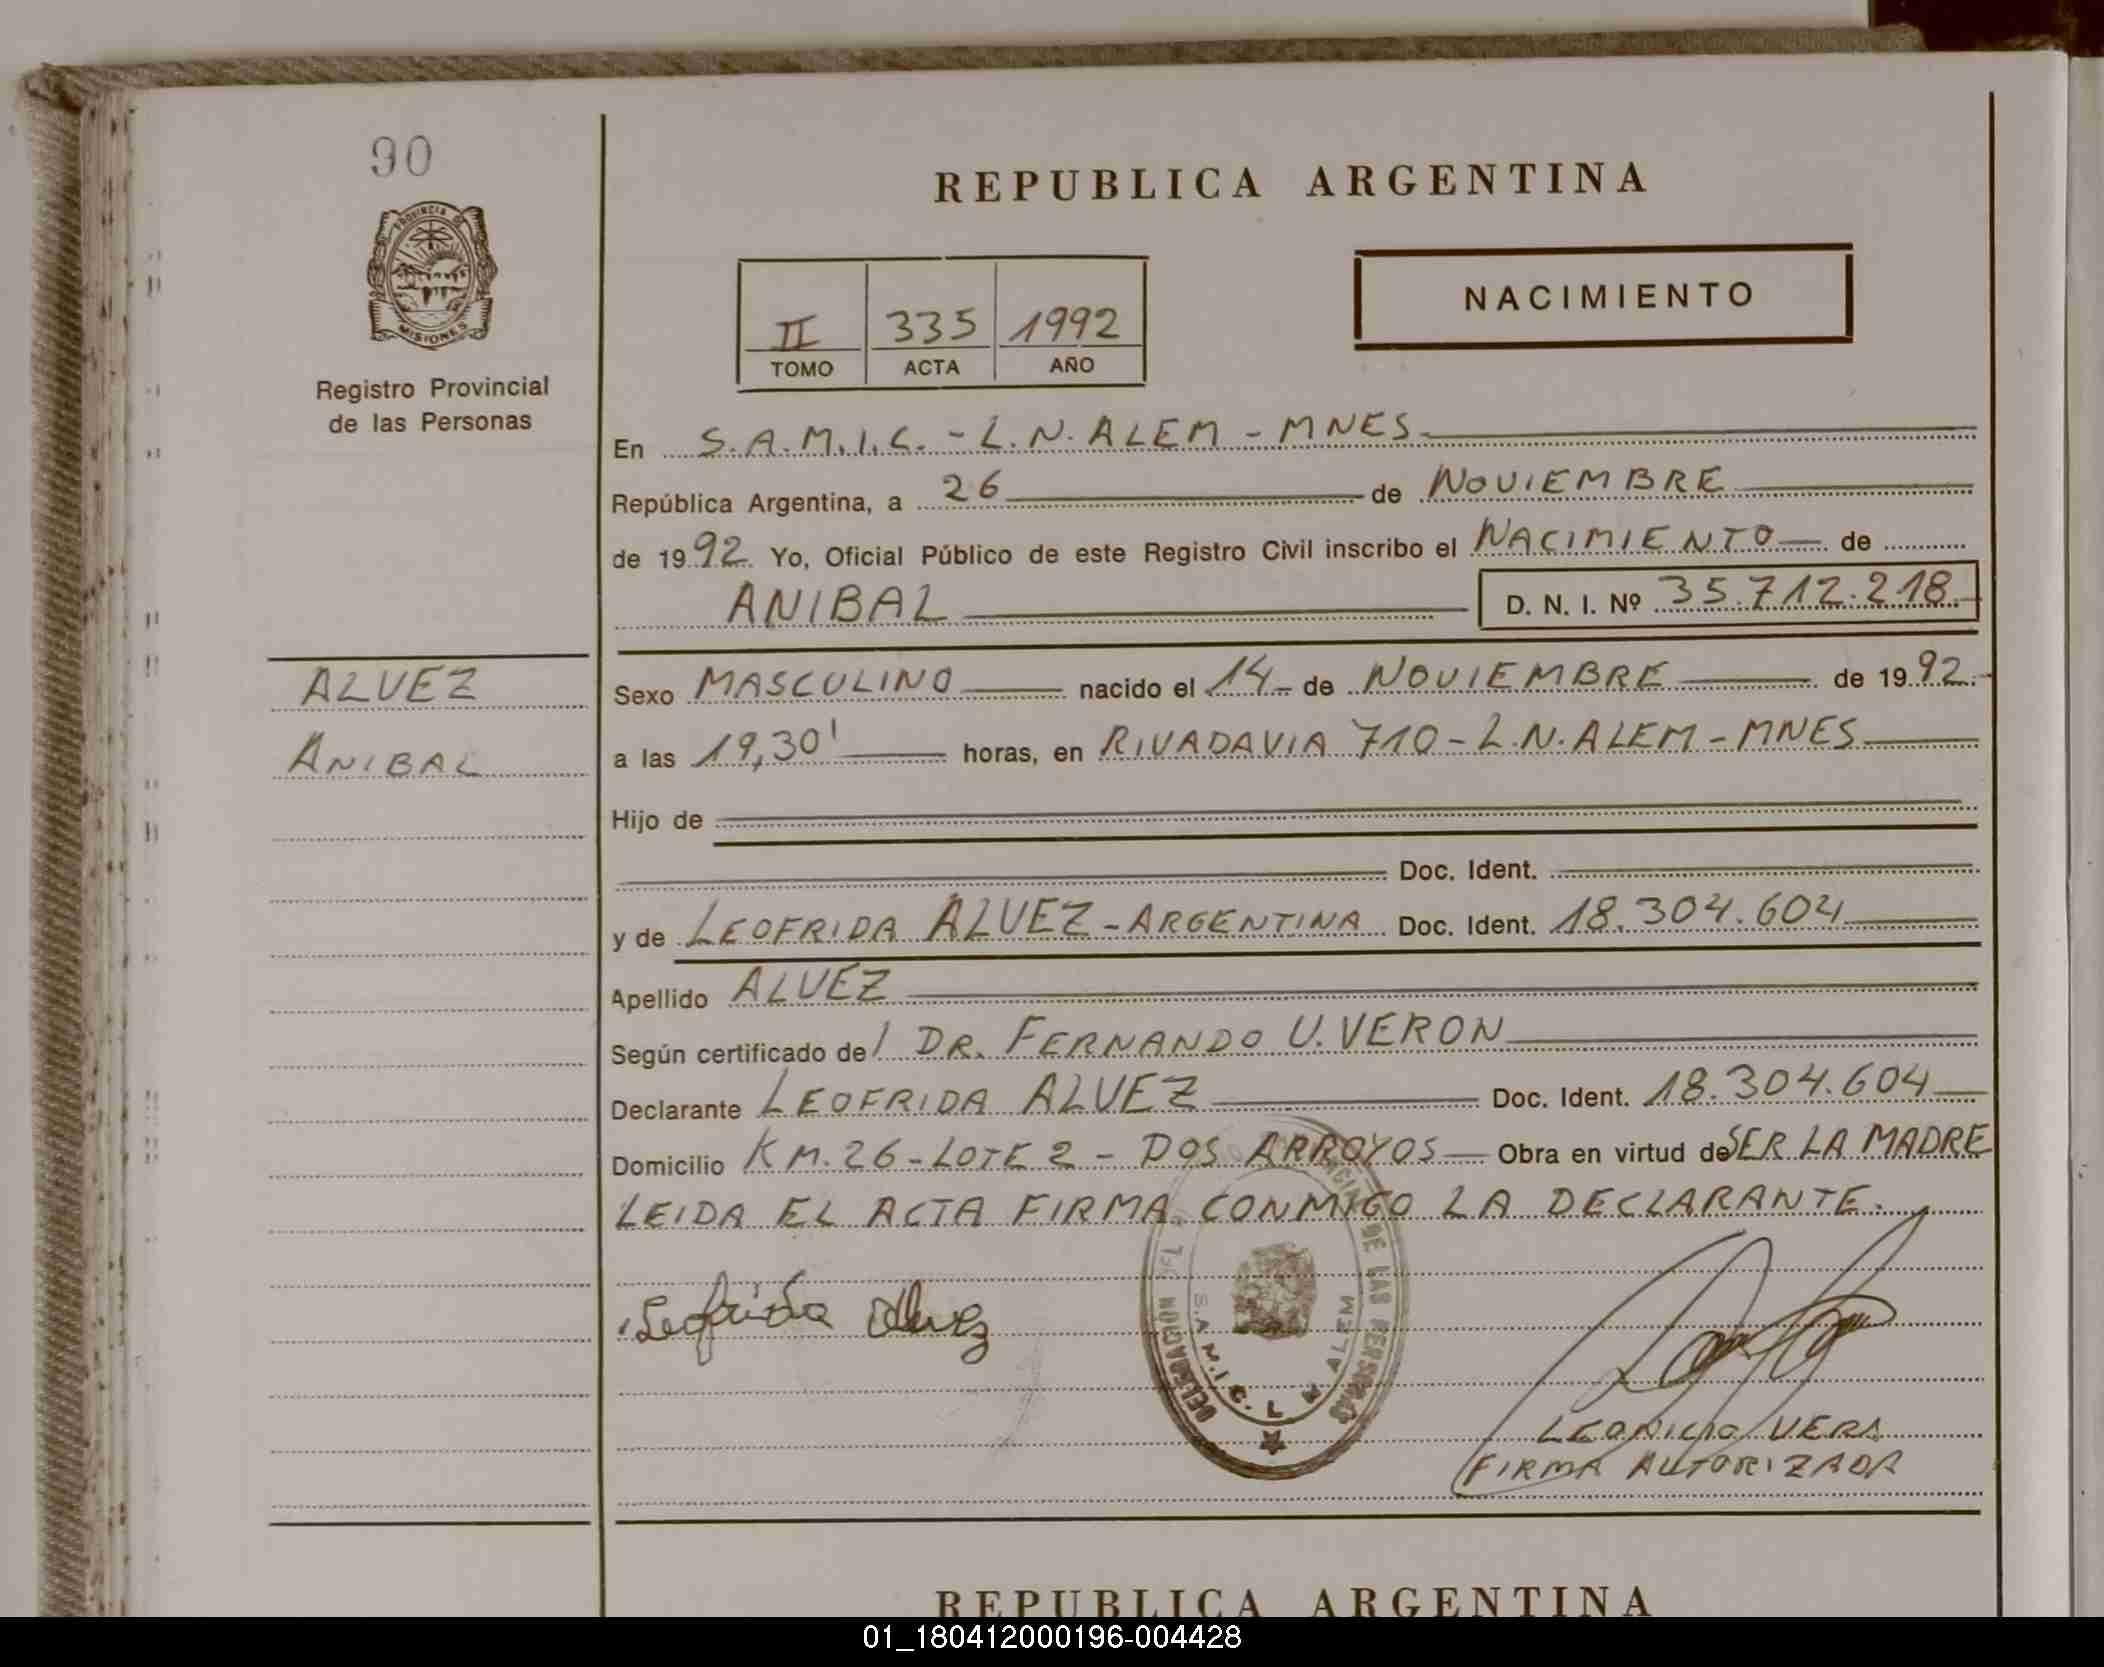 90
PROVINCIA DE
MISIONES
Registro Provincial
de las Personas
REPUBLICA ARGENTINA
II 335 1992
TOMO ACTA AÑO
NACIMIENTO
En S.A.M.I.C. - L.N. ALEM - MNES
República Argentina, a 26 de NOVIEMBRE
de 1992 Yo, Oficial Público de este Registro Civil inscribo el NACIMIENTO de
ANIBAL D. N. I. Nº 35.712.218
ALVEZ
ANIBAL
Sexo MASCULINO nacido el 14 de NOVIEMBRE de 1992
a las 19,30' horas, en RIVADAVIA 710 - L.N. ALEM - MNES
Hijo de
Doc. Ident.
y de LEOFRIDA ALVEZ - ARGENTINA Doc. Ident. 18.304.604
Apellido ALVEZ
Según certificado de/ DR. FERNANDO U. VERON
Declarante LEOFRIDA ALVEZ Doc. Ident. 18.304.604
Domicilio KM. 26 - LOTE 2 - DOS ARROYOS Obra en virtud de SER LA MADRE
LEIDA EL ACTA FIRMA CONMIGO LA DECLARANTE.
Leofrida Alvez
DE LAS PERSONAS
S.A.M.I.C. L N ALEM
LEONICIO VERA
FIRMA AUTORIZADA
REPUBLICA ARGENTINA
01_180412000196-004428